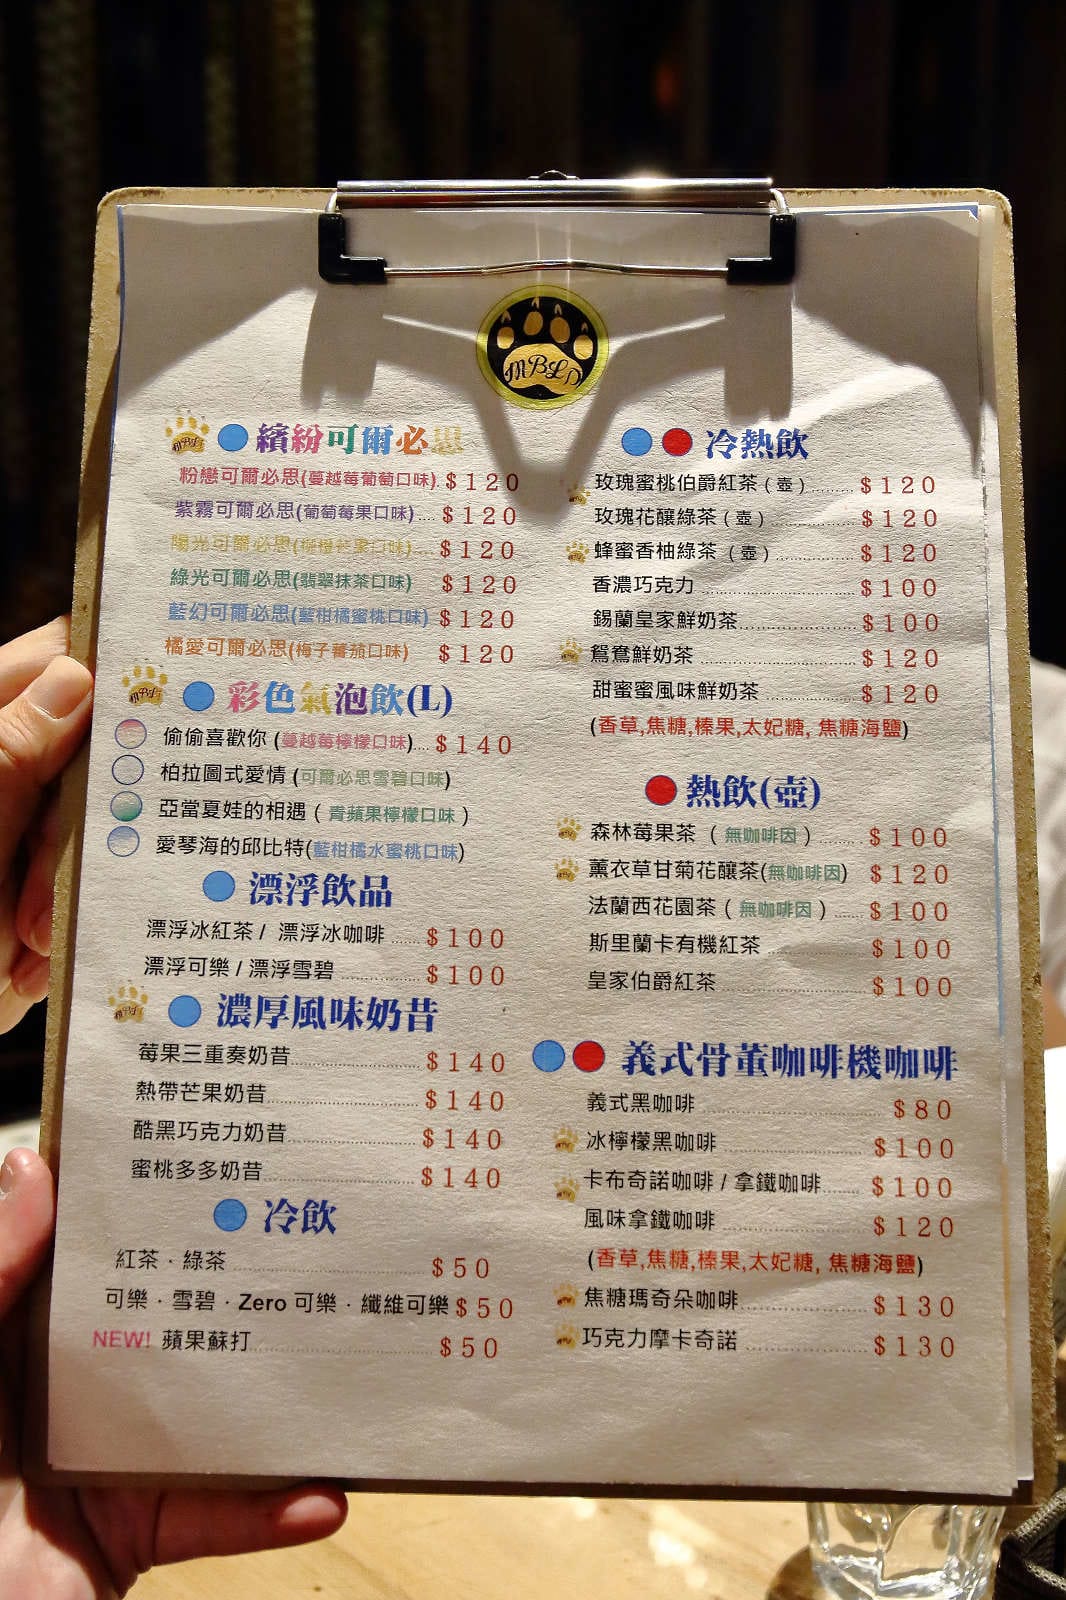 MBLD
繽紛可爾必思
粉戀可爾必思(蔓越莓葡萄口味) $120
紫霧可爾必思(葡萄莓果口味).... $120
陽光可爾必思(柳橙芒果口味)... $120
綠光可爾必思(翡翠抹茶口味) $120
藍幻可爾必思(藍柑橘蜜桃口味) $120
橘愛可爾必思(梅子蕃茄口味) $120
彩色氣泡飲(L)
偷偷喜歡你 (蔓越莓檸檬口味).... $140
柏拉圖式愛情 (可爾必思雪碧口味)
亞當夏娃的相遇 ( 青蘋果檸檬口味 )
愛琴海的邱比特(藍柑橘水蜜桃口味)
漂浮飲品
漂浮冰紅茶 / 漂浮冰咖啡 ...... $100
漂浮可樂 / 漂浮雪碧 ............ $100
濃厚風味奶昔
莓果三重奏奶昔.................... $140
熱帶芒果奶昔....................... $140
酷黑巧克力奶昔.................... $140
蜜桃多多奶昔....................... $140
冷飲
紅茶．綠茶 ............................ $50
可樂．雪碧．Zero 可樂．纖維可樂 $50
NEW! 蘋果蘇打............................ $50
冷熱飲
玫瑰蜜桃伯爵紅茶 ( 壺 )......... $120
玫瑰花釀綠茶 ( 壺 ) ............... $120
蜂蜜香柚綠茶 ( 壺 ) ............... $120
香濃巧克力 ........................... $100
錫蘭皇家鮮奶茶.................... $100
鴛鴦鮮奶茶 ........................... $120
甜蜜蜜風味鮮奶茶 ................ $120
(香草,焦糖,榛果,太妃糖, 焦糖海鹽)
熱飲(壺)
森林莓果茶 ( 無咖啡因 ) ........ $100
薰衣草甘菊花釀茶(無咖啡因) $120
法蘭西花園茶 ( 無咖啡因 ) ...... $100
斯里蘭卡有機紅茶 ................ $100
皇家伯爵紅茶....................... $100
義式骨董咖啡機咖啡
義式黑咖啡 ........................... $80
冰檸檬黑咖啡 ....................... $100
卡布奇諾咖啡 / 拿鐵咖啡........ $100
風味拿鐵咖啡 ....................... $120
(香草,焦糖,榛果,太妃糖, 焦糖海鹽)
焦糖瑪奇朵咖啡.................... $130
巧克力摩卡奇諾 .................... $130